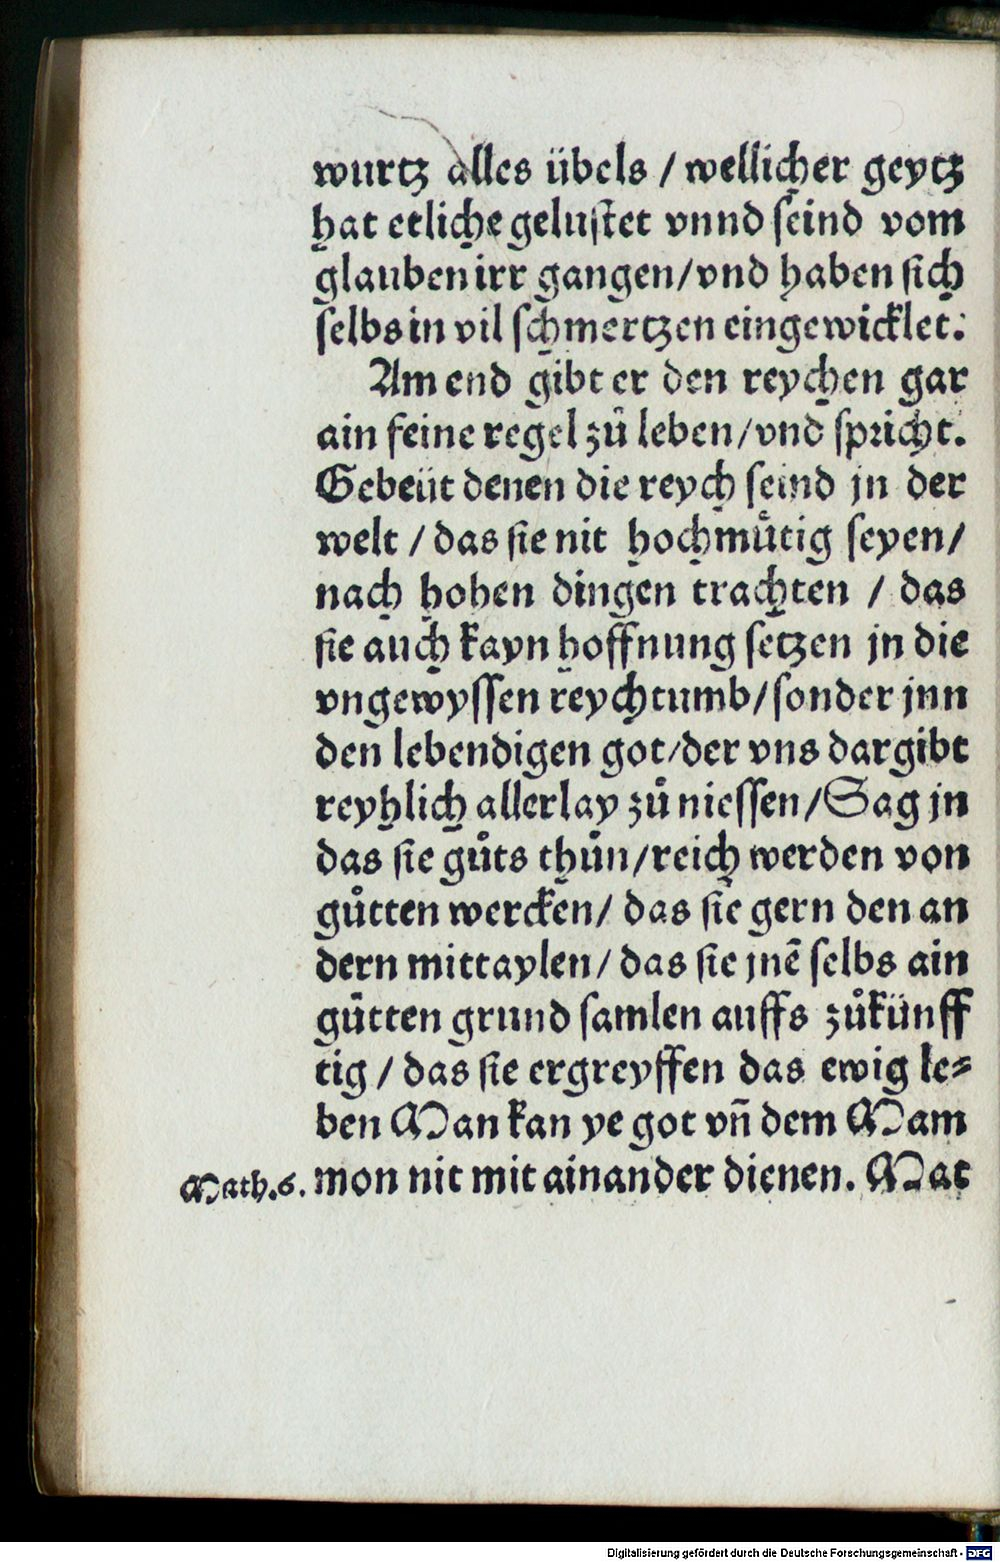 wurtz alles übels / wellicher geytz
hat etliche gelustet vnnd seind vom
glauben irr gangen/vnd haben sich
selbs in vil schmertzen eingewicklet.
Am end gibt er den reychen gar
ain feine regel zů leben/vnd spricht.
Gebeüt denen die reych seind jn der
welt / das sie nit hochmuͤtig seyen/
nach hohen dingen trachten / das
sie auch kayn hoffnung setzen jn die
vngewyssen reychtumb/sonder jnn
den lebendigen got/der vns dargibt
reyhlich allerlay zů niessen/Sag jn
das sie gůts thůn/reich werden von
gůtten wercken/ das sie gern den an
dern mittaylen/das sie jnē selbs ain
gůtten grund samlen auffs zůkünff
tig / das sie ergreyffen das ewig le⸗
ben Man kan ye got vñ dem Mam
Math.6. mon nit mit ainander dienen. Mat
Digitalisierung gefördert durch die Deutsche Forschungsgemeinschaft - DFG